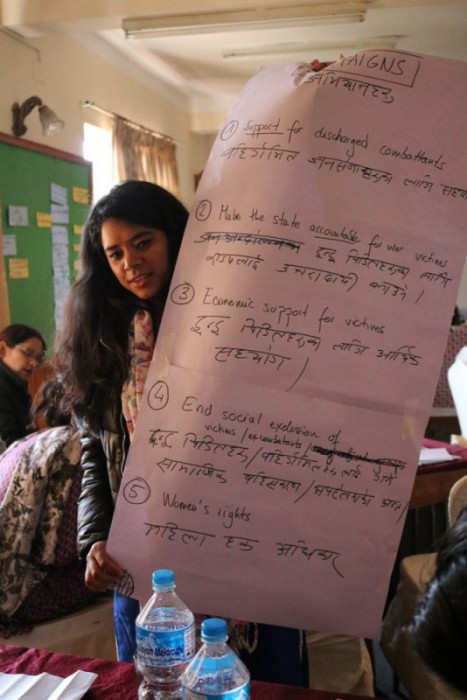 AIGNS
अभियानहरु
① Support for discharged combattants
बहिर्गमित जनसेनाहरुका लागि
② Make the state accountable for war victims
द्वन्द्व पिडितहरुका लागि
राज्यलाई उत्तरदायी बनाउने।
③ Economic support for victims
द्वन्द्व पिडितहरुका लागि आर्थिक
सहयोग।
④ End social exclusion of
victims/excombattants
द्वन्द्व पिडितहरु/बहिर्गमितहरु लाई
सामाजिक बहिस्करण/
⑤ Women's rights
महिला हक अधिकार